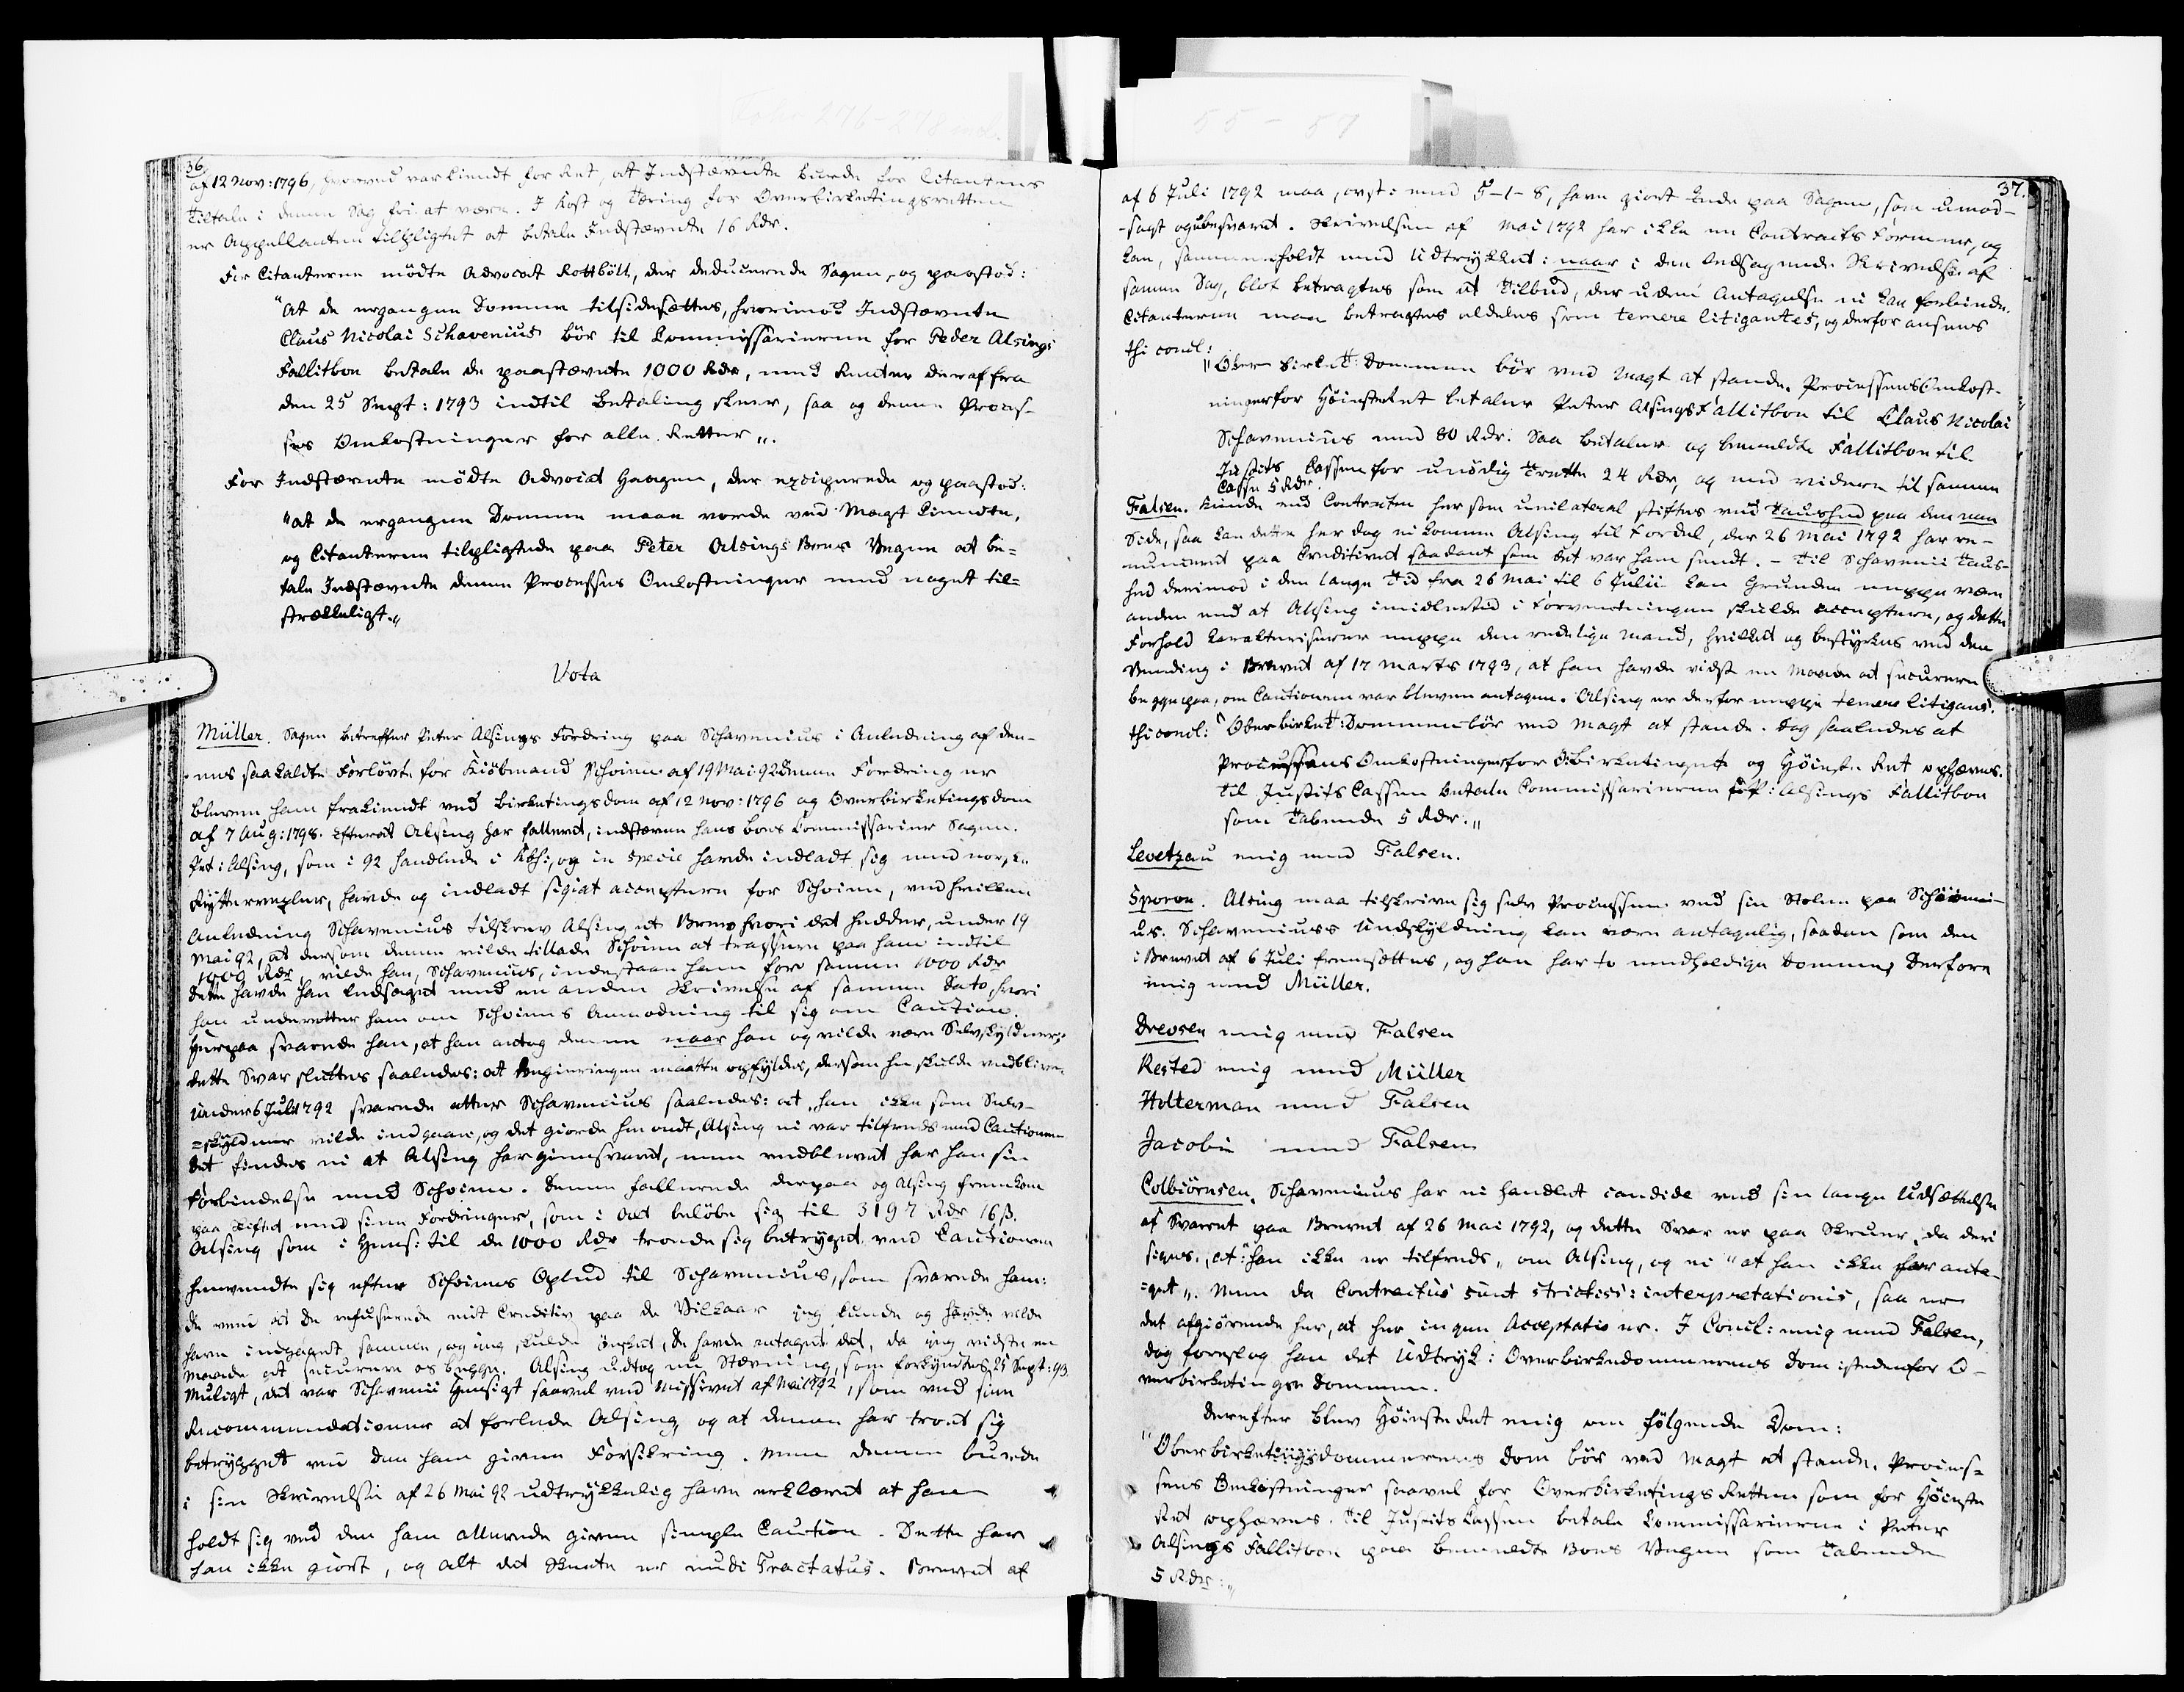 36.
af 12 Nov: 1796, hvorved var kiendt for Ret, at Indstævnte burde for Citantens
Tiltale i denne Sag fri at være. I Kost og Tæring for Overbirketingsretten
er Appellanten tilpligtet at betale Indstævnte 16 Rdr.
For Citanterne mödte Advocat Rottböll, der deducerede Sagen, og paastod:
"At de ergangne Domme tilsidesættes, hvorimod Indstævnte
Claus Nicolai Schavenius bör til Commissarierne for Peder Alsings
Fallitboe betale de paastævnte 1000 Rdr, med Renter deraf fra
den 25 Sept: 1793 indtil Betaling skeer, saa og denne Proces-
ses Omkostninger for alle Retter".
For Indstævnte mödte Advocat Haagen, der exciperede og paastod:
"at de ergangne Domme maae vorde ved Magt kiendte,
og Citanterne tilpligtede paa Peter Alsings Boes Vegne at be=
tale Indstævnte denne Processes Omkostninger med noget til=
strækkeligt."
Vota
Müller. Sagen betreffer Peter Alsings Fordring paa Schavenius i Anledning af den-
nes saakaldte Forlövte for Kiöbmand Schoinne af 19 Mai 92 denne Fordring er
bleven ham frakiendt ved Birketingsdom af 12 Nov: 1796 og Overbirketingsdom
af 7 Aug: 1798. Efterat Alsing har falleret, indstævne hans Boes Commissarier Sagen.
Pet: Alsing, som i 92 handlede i Kbh:, og in specie havde indladt sig med norske
Ryttervexler, havde og indladt sig i at acceptere for Schoinne, ved hvilken
Anledning Schavenius tilskrev Alsing et Brev hvori det hedder, under 19
Mai 92, at dersom denne vilde tillade Schoinne at trassere paa ham indtil
1000 Rdr, vilde han, Schavenius, indestaae ham for samme 1000 Rdr
dette havde han ledsaget med en anden Skrivelse af samme Dato, hvori
han underretter ham om Schoinnes Anmodning til sig om Caution.
Herpaa svarede han, at han antog denne naar han og vilde være Selvskyldner,
dette Svar sluttes saaledes: at Vegringen maatte opfyldes, dersom hn skulde vedblive.
Under 6 Juli 1792 svarede atter Schavenius saaledes: at han ikke som Selv-
=skyldner vilde indgaae, og det giorde hm ondt, Alsing ei var tilfreds med Cautionen
det findes ei at Alsing har giensvaret, men vedblevet har han sin
Forbindelse med Schoinne. Denne fallerede derpaa og Alsing fremkom
paa Skiftet med sine Fordringer, som i Alt beløbe sig til 3197 Rdr 16 ß.
Alsing som i Hens: til de 1000 Rdr troede sig betrygget ved Cautionen
henvendte sig efter Schoinnes Opbud til Schavenius, som svarede ham:
de veed at De refuserede mit Creditiv paa de Vilkaar jeg kunde og havde vilde
have indgaaet samme, og jeg skulde önsket, De havde antaget det, da jeg vidste en
Maade at securere os begge. Alsing udtog nu Stævning, som forkyndtes 25 Sept: 93.
Muligt, det var Schavenii Hensigt saavel ved Missivet af Mai 1792, som ved sine
Recommendationer at forlede Alsing, og at denne har troet sig
betrygget ved den ham givne Forsikring. Men denne burde
i sin Skrivelse af 26 Mai 92 udtrykkelig have erklæret at han
holdt sig ved den ham allerede givne simple Caution. Dette har
han ikke giort, og alt det Skeete er nudi Tractatus. Brevet af
37.
af 6 Juli 1792 maa, cfst: med 5-1-8, have giort Ende paa Sagen, som umod-
-sagt og ubesvaret. Skrivelsen af Mai 1792 har ikke en Contracts Former, og
kan, sammenholdt med Udtrykket: naar i den ledsagende Skrivelse af
samme Dag, blot betragtes som et Tilbud, der uden Antagelse ei kan forbinde.
Citanterne maa betragtes aldeles som temere litigantes, og derfor ansees
thi concl:
"Over Birke T: Dommen bör ved Magt at stande. Processens Omkost-
ninger for Höiesteret betaler Peter Alsings Fallitboe til Claus Nicolai
Schavenius med 80 Rdr. Saa betaler og bemeldte Fallitboe til
Justits Cassen for unödig Trætte 24 Rdr, og end videre til samme
Casse 5 Rdr.
Falsen. Kunde end Contracten her som unilateral stiftes ved Taushed paa den een
Side, saa kan dette her dog ei komme Alsing til Fordel, der 26 Mai 1792 har re-
nunceret paa Creditivet saadant som det var ham sendt. - Til Schavenii Taus-
hed derimod i den lange Tid fra 26 Mai til 6 Julii kan Grunden neppe være
anden end at Alsing imidlertid i Forventningen skulde acceptere, og dette
Forhold karakteriserer neppe den redelige Mand, hvilket og bestyrkes ved den
Vending i Brevet af 17 Marts 1793, at han havde vidst en Maade at securere
begge paa, om Cautionen var bleven antagen. Alsing er derfor neppe temere litigans.
thi concl: "Overbirket: Dommen bör ved Magt at stande. Dog saaledes at
Processens Omkostninger for O:Birketinget og Höieste Ret ophæves.
Til Justits Cassen betale Commissarierne i P: Alsings Fallitboe
som Tabende 5 Rdr."
Levetzau enig med Falsen.
Sporon. Alsing maa tilskrive sig selv Processen ved sin Stolen paa Schaveni-
us. Schavenius's Undskyldning kan være antagelig, saadan som den
i Brevet af 6 Juli fremsættes, og han har to medholdige Domme, derfore
enig med Müller.
Drevsen enig med Falsen
Rested enig med Müller
Holterman med Falsen
Jacobi med Falsen
Colbiörnsen. Schavenius har ei handlet candide ved sin lange Udsættelse
af Svaret paa Brevet af 26 Mai 1792, og dette Svar er paa Skruer, da deri
siges, at: "han ikke er tilfreds" om Alsing, og ei "at han ikke har anta-
=get". Men da Contractus sunt strictiss: interpretationis, saa er
det afgiörende her, at her ingen Acceptatio er. I Concl: enig med Falsen,
dog foreslog han det Udtryk: Overbirkedommerens Dom istedenfor O-
verbirketings Dommen.
Derefter blev Höieste Ret enig om fölgende Dom:
"Overbirketingsdommerens Dom bör ved Magt at stande. Proces-
sens Omkostninger saavel for Overbirketings Retten som for Höieste
Ret ophæves. Til Justits Cassen betale Commissarierne i Peter
Alsings Fallitboe paa bemeldte Boes Vegne som Tabende
5 Rdr."